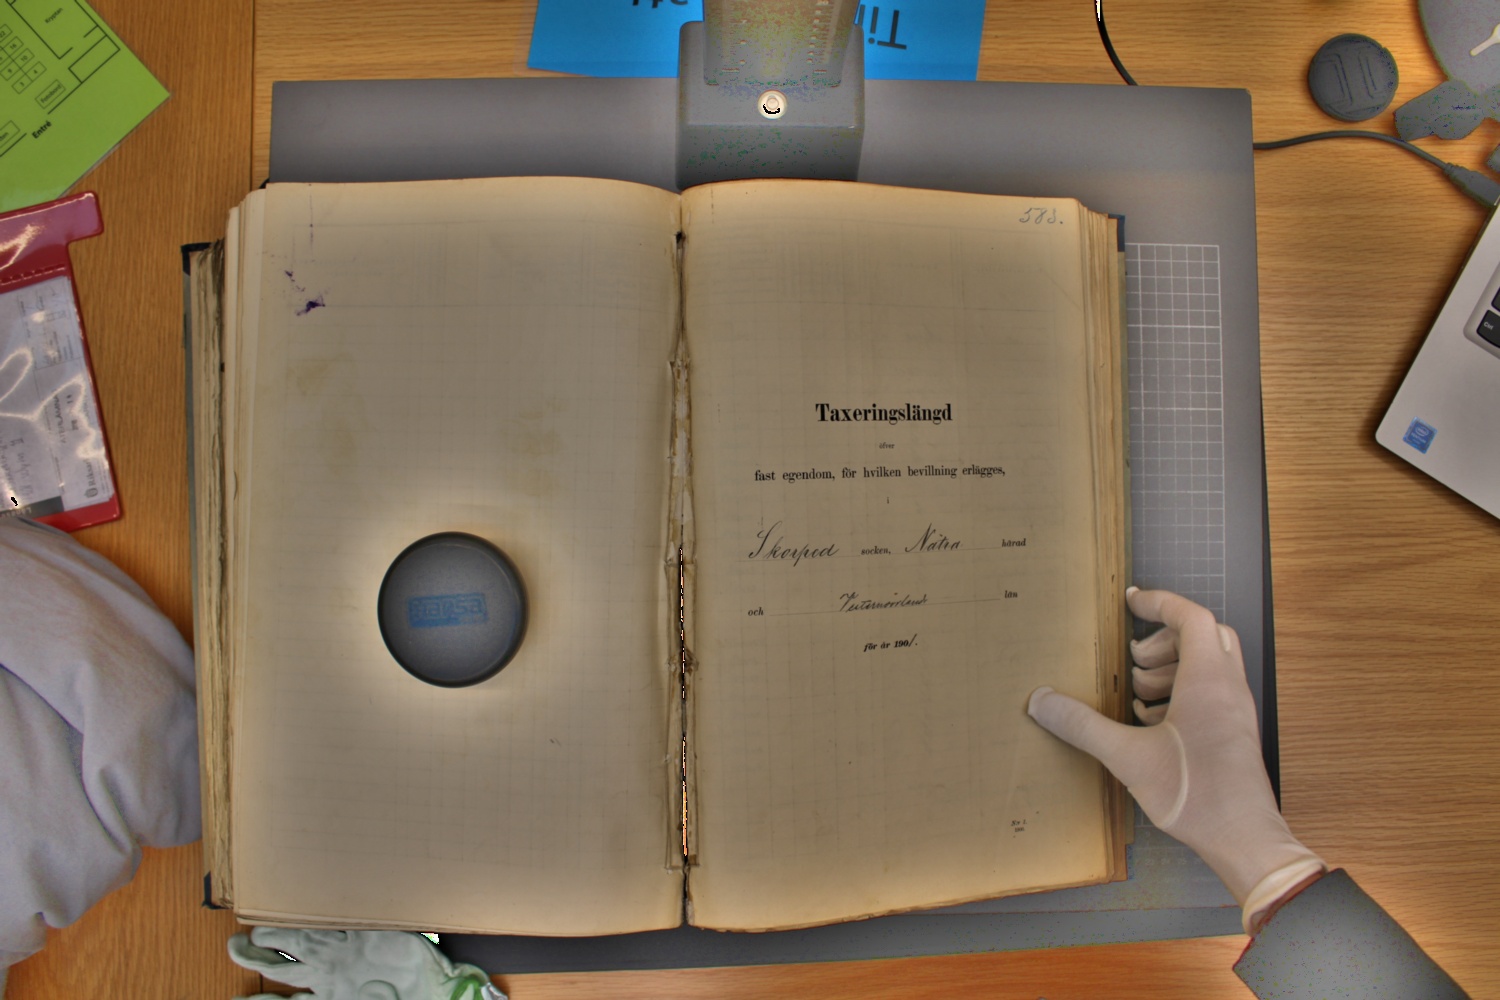 583.
Taxeringslängd
öfver
fast egendom, för hvilken bevillning erlägges,
i
Skorped socken, Nätra härad
och Vesternorrlands län
för år 1901.
Entré